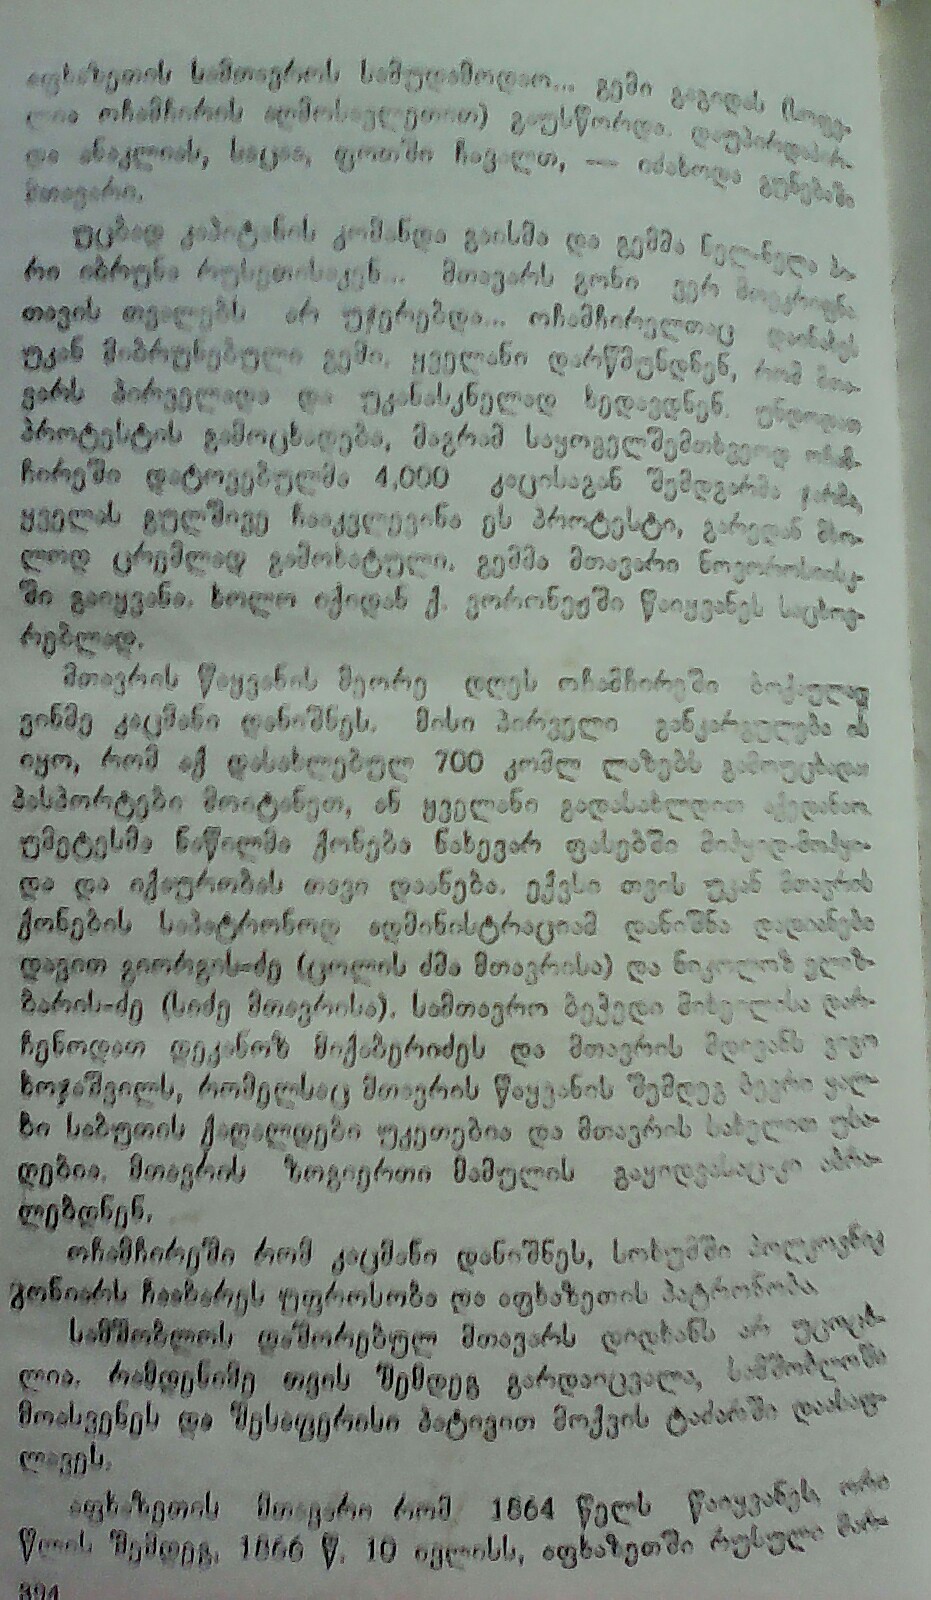 აფხაზეთის სამთავროს სამუდამოდაო... გემი გაგიდას (სოფე-
ლია ოჩამჩირის აღმოსავლეთით) გაუსწორდა. დაუპირდაპირ-
და ანაკლიას, საცაა, ფოთში ჩავალთ, — იძახოდა გუნებაში
მთავარი.
უცბად კაპიტანის კომანდა გაისმა და გემმა ნელ-ნელა პი-
რი იბრუნა რუსეთისაკენ... მთავარს გონი ვერ მოეკრიფნა
თავის თვალებს არ უჯერებდა... ოჩამჩირელთაც დაინახეს
უკან მიბრუნებული გემი. ყველანი დარწმუნდნენ, რომ მთა-
ვარს პირველადა და უკანასკნელად ხედავდნენ. უნდოდათ
პროტესტის გამოცხადება, მაგრამ საყოველშემთხვეოდ ოჩამ-
ჩირეში დატოვებულმა 4,000 კაცისაგან შემდგარმა ჯარმა,
ყველას გულშივე ჩააკვლევინა ეს პროტესტი, გარედან მხო-
ლოდ ცრემლად გამოხატული. გემმა მთავარი ნოვოროსიისკ-
ში გაიყვანა. ხოლო იქიდან ქ. ვორონეჟში წაიყვანეს საცხოვ-
რებლად.
მთავრის წაყვანის მეორე დღეს ოჩამჩირეში ბოქაულად
ვინმე კაცმანი დანიშნეს. მისი პირველი განკარგულება ის
იყო, რომ აქ დასახლებულ 700 კომლ ლაზებს გამოუცხადა:
პასპორტები მოიტანეთ, ან ყველანი გადასახლდით აქედანაო.
უმეტესმა ნაწილმა ქონება ნახევარ ფასებში მიჰყიდ-მოჰყი-
და და იქაურობას თავი დაანება. ექვსი თვის უკან მთავრის
ქონების საპატრონოდ ადმინისტრაციამ დანიშნა დადიანები
დავით გიორგის-ძე (ცოლის ძმა მთავრისა) და ნიკოლოზ ელიზ-
ბარის-ძე (სიძე მთავრისა). სამთავრო ბეჭედი მიხეილისა დარ-
ჩენოდათ დეკანოზ მიქაბერიძეს და მთავრის მდივანს
ხოჯაშვილს, რომელსაც მთავრის წაყვანის შემდეგ ბევრი ყალ-
ბი საბუთის ქაღალდები უკეთებია და მთავრის სახელით უსა-
ღებია. მთავრის ზოგიერთი მამულის გაყიდვასაც-კი აბრა-
ლებდნენ.
ოჩამჩირეში რომ კაცმანი დანიშნეს, სოხუმში პოლკოვნიკ
კონიარს ჩააბარეს უფროსობა და აფხაზეთის პატრონობა.
სამშობლოს დაშორებულ მთავარს დიდხანს არ უცოცხ-
ლია. რამდენიმე თვის შემდეგ გარდაიცვალა, სამშობლოში
მოასვენეს და შესაფერისი პატივით მოქვის ტაძარში დაასაფ-
ლავეს.
აფხაზეთის მთავარი რომ 1864 წელს წაიყვანეს, ორი
წლის შემდეგ, 1866 წ. 10 ივლისს, აფხაზეთში რუსული მარ-